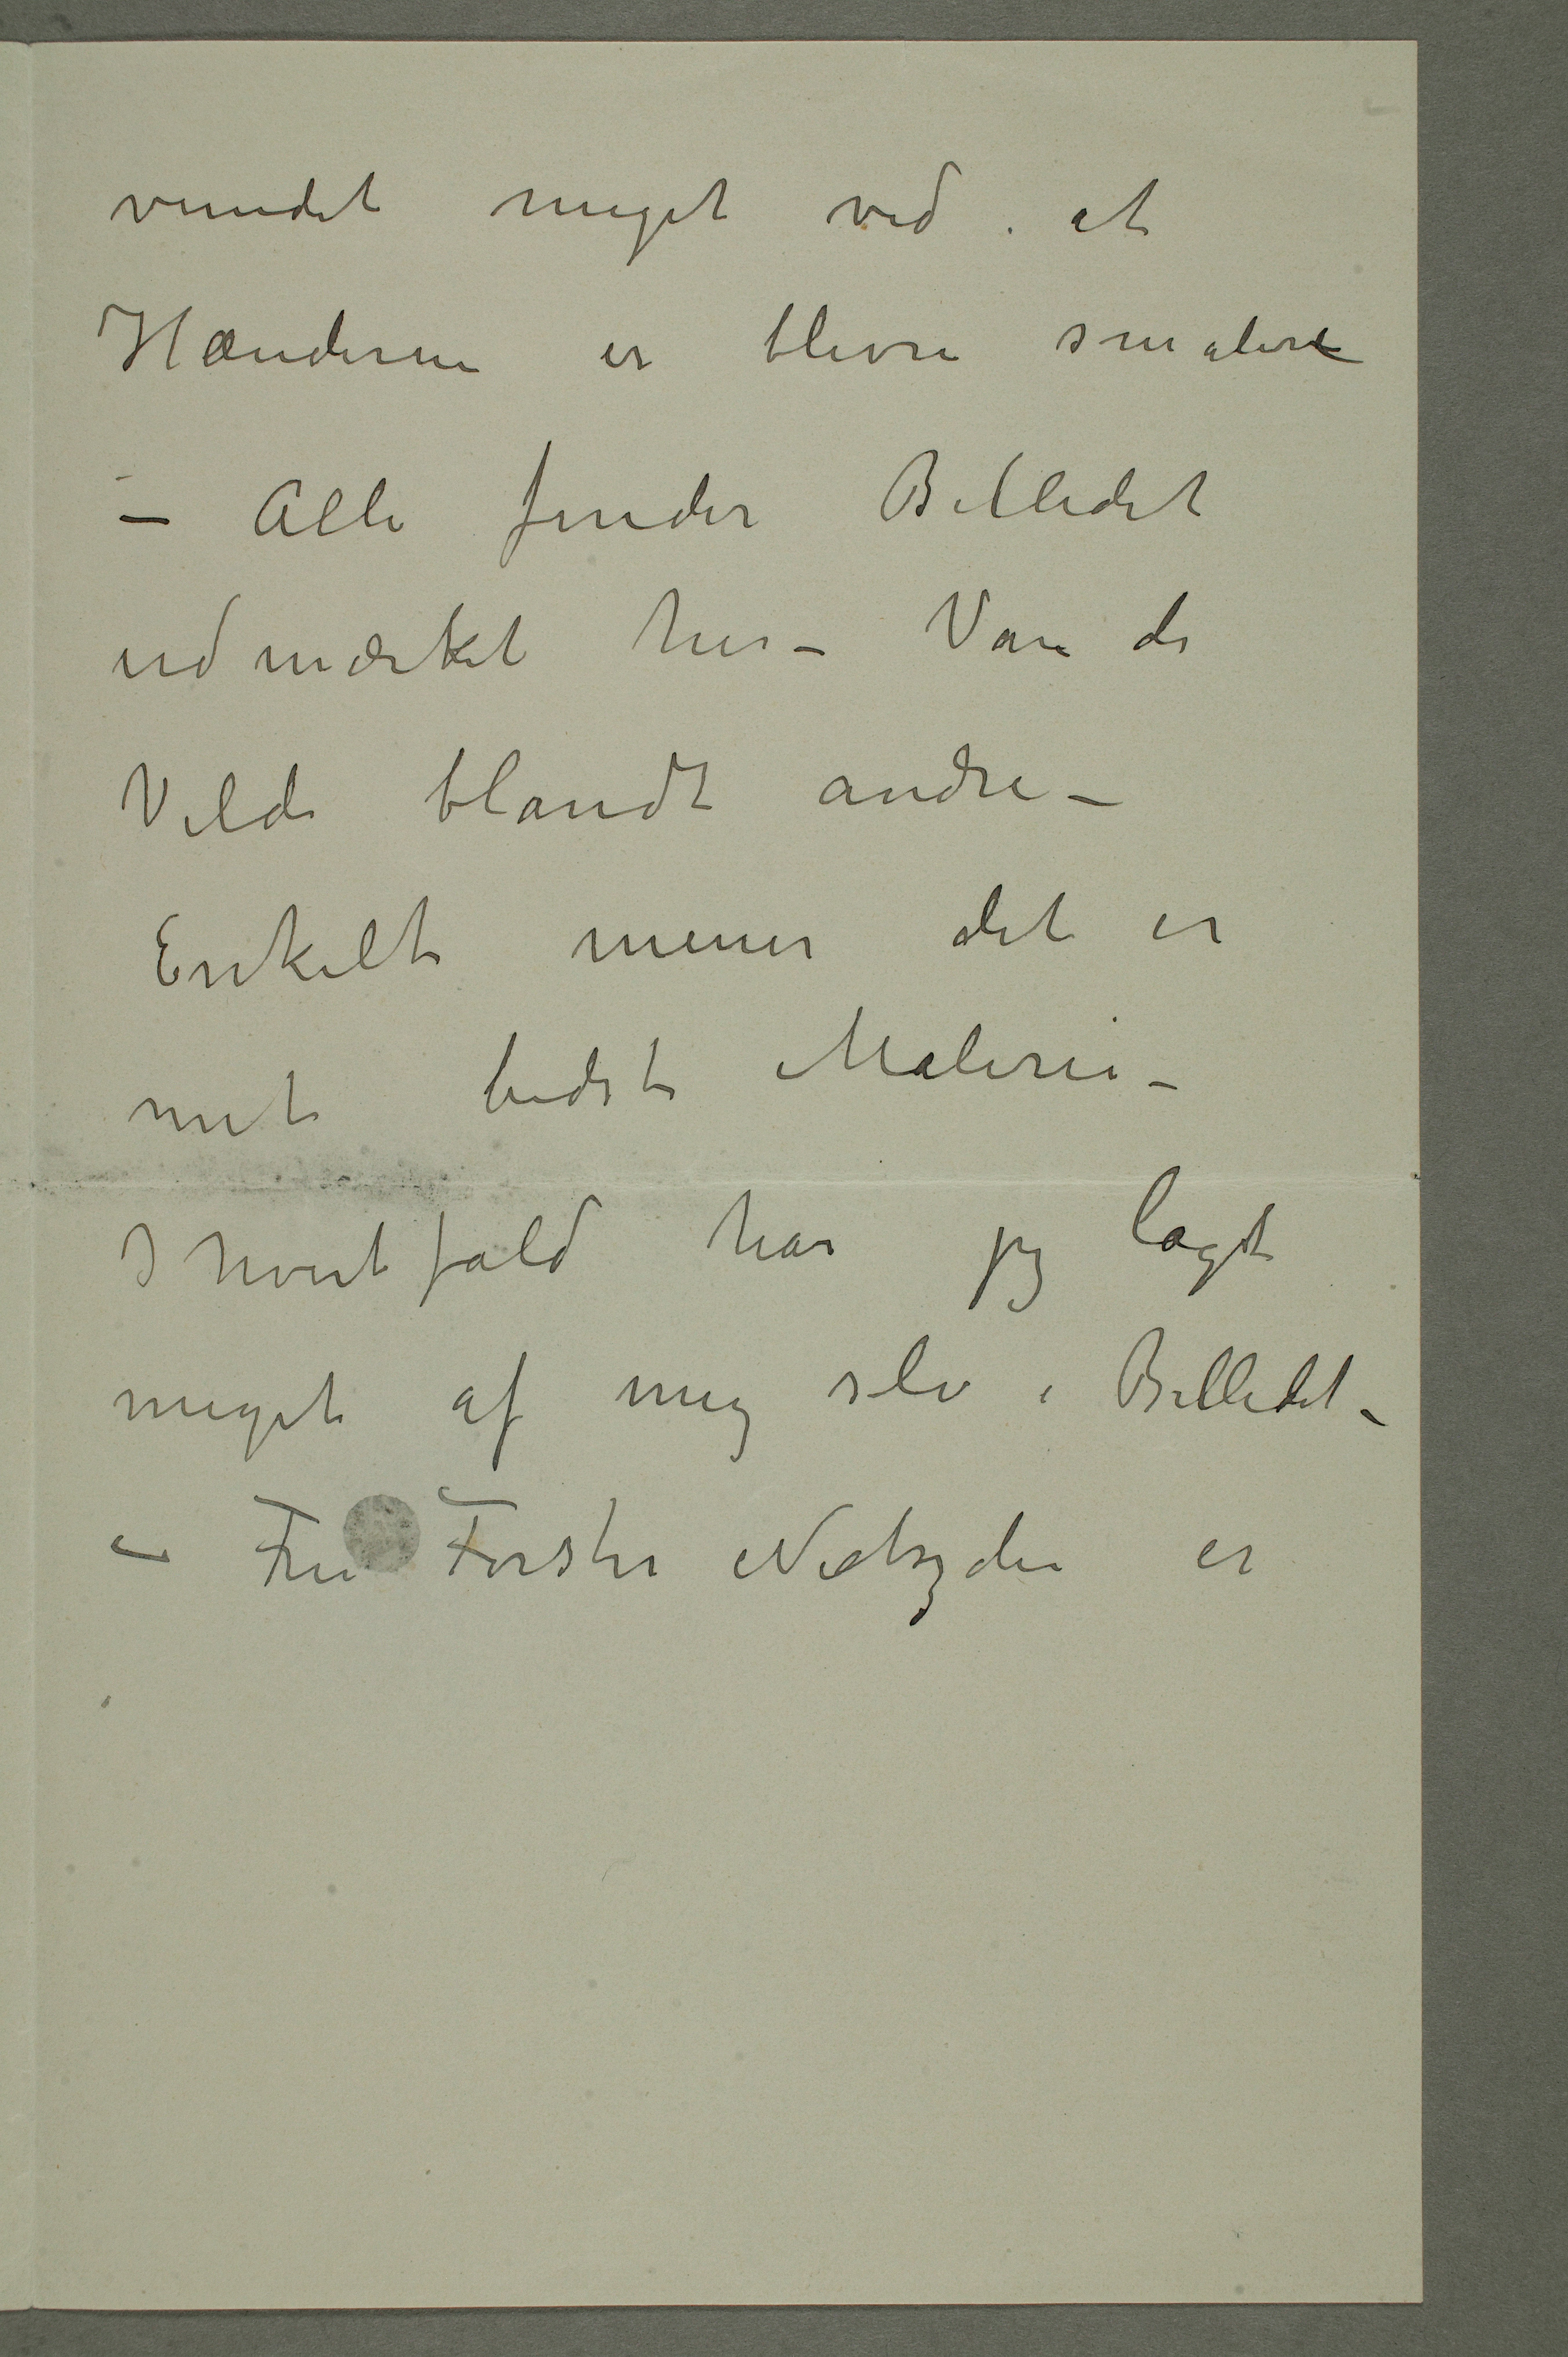 vundet meget ved at
Hænderne er blevne smalere
– Alle finder Billedet
udmærket her – Van de
Velde blandt andre –
Enkelte mener det er
mit bedste Maleri –
I hvert fald har jeg lagt
meget af mig selv i Billedet –
– Fru Førster Nietzsche er